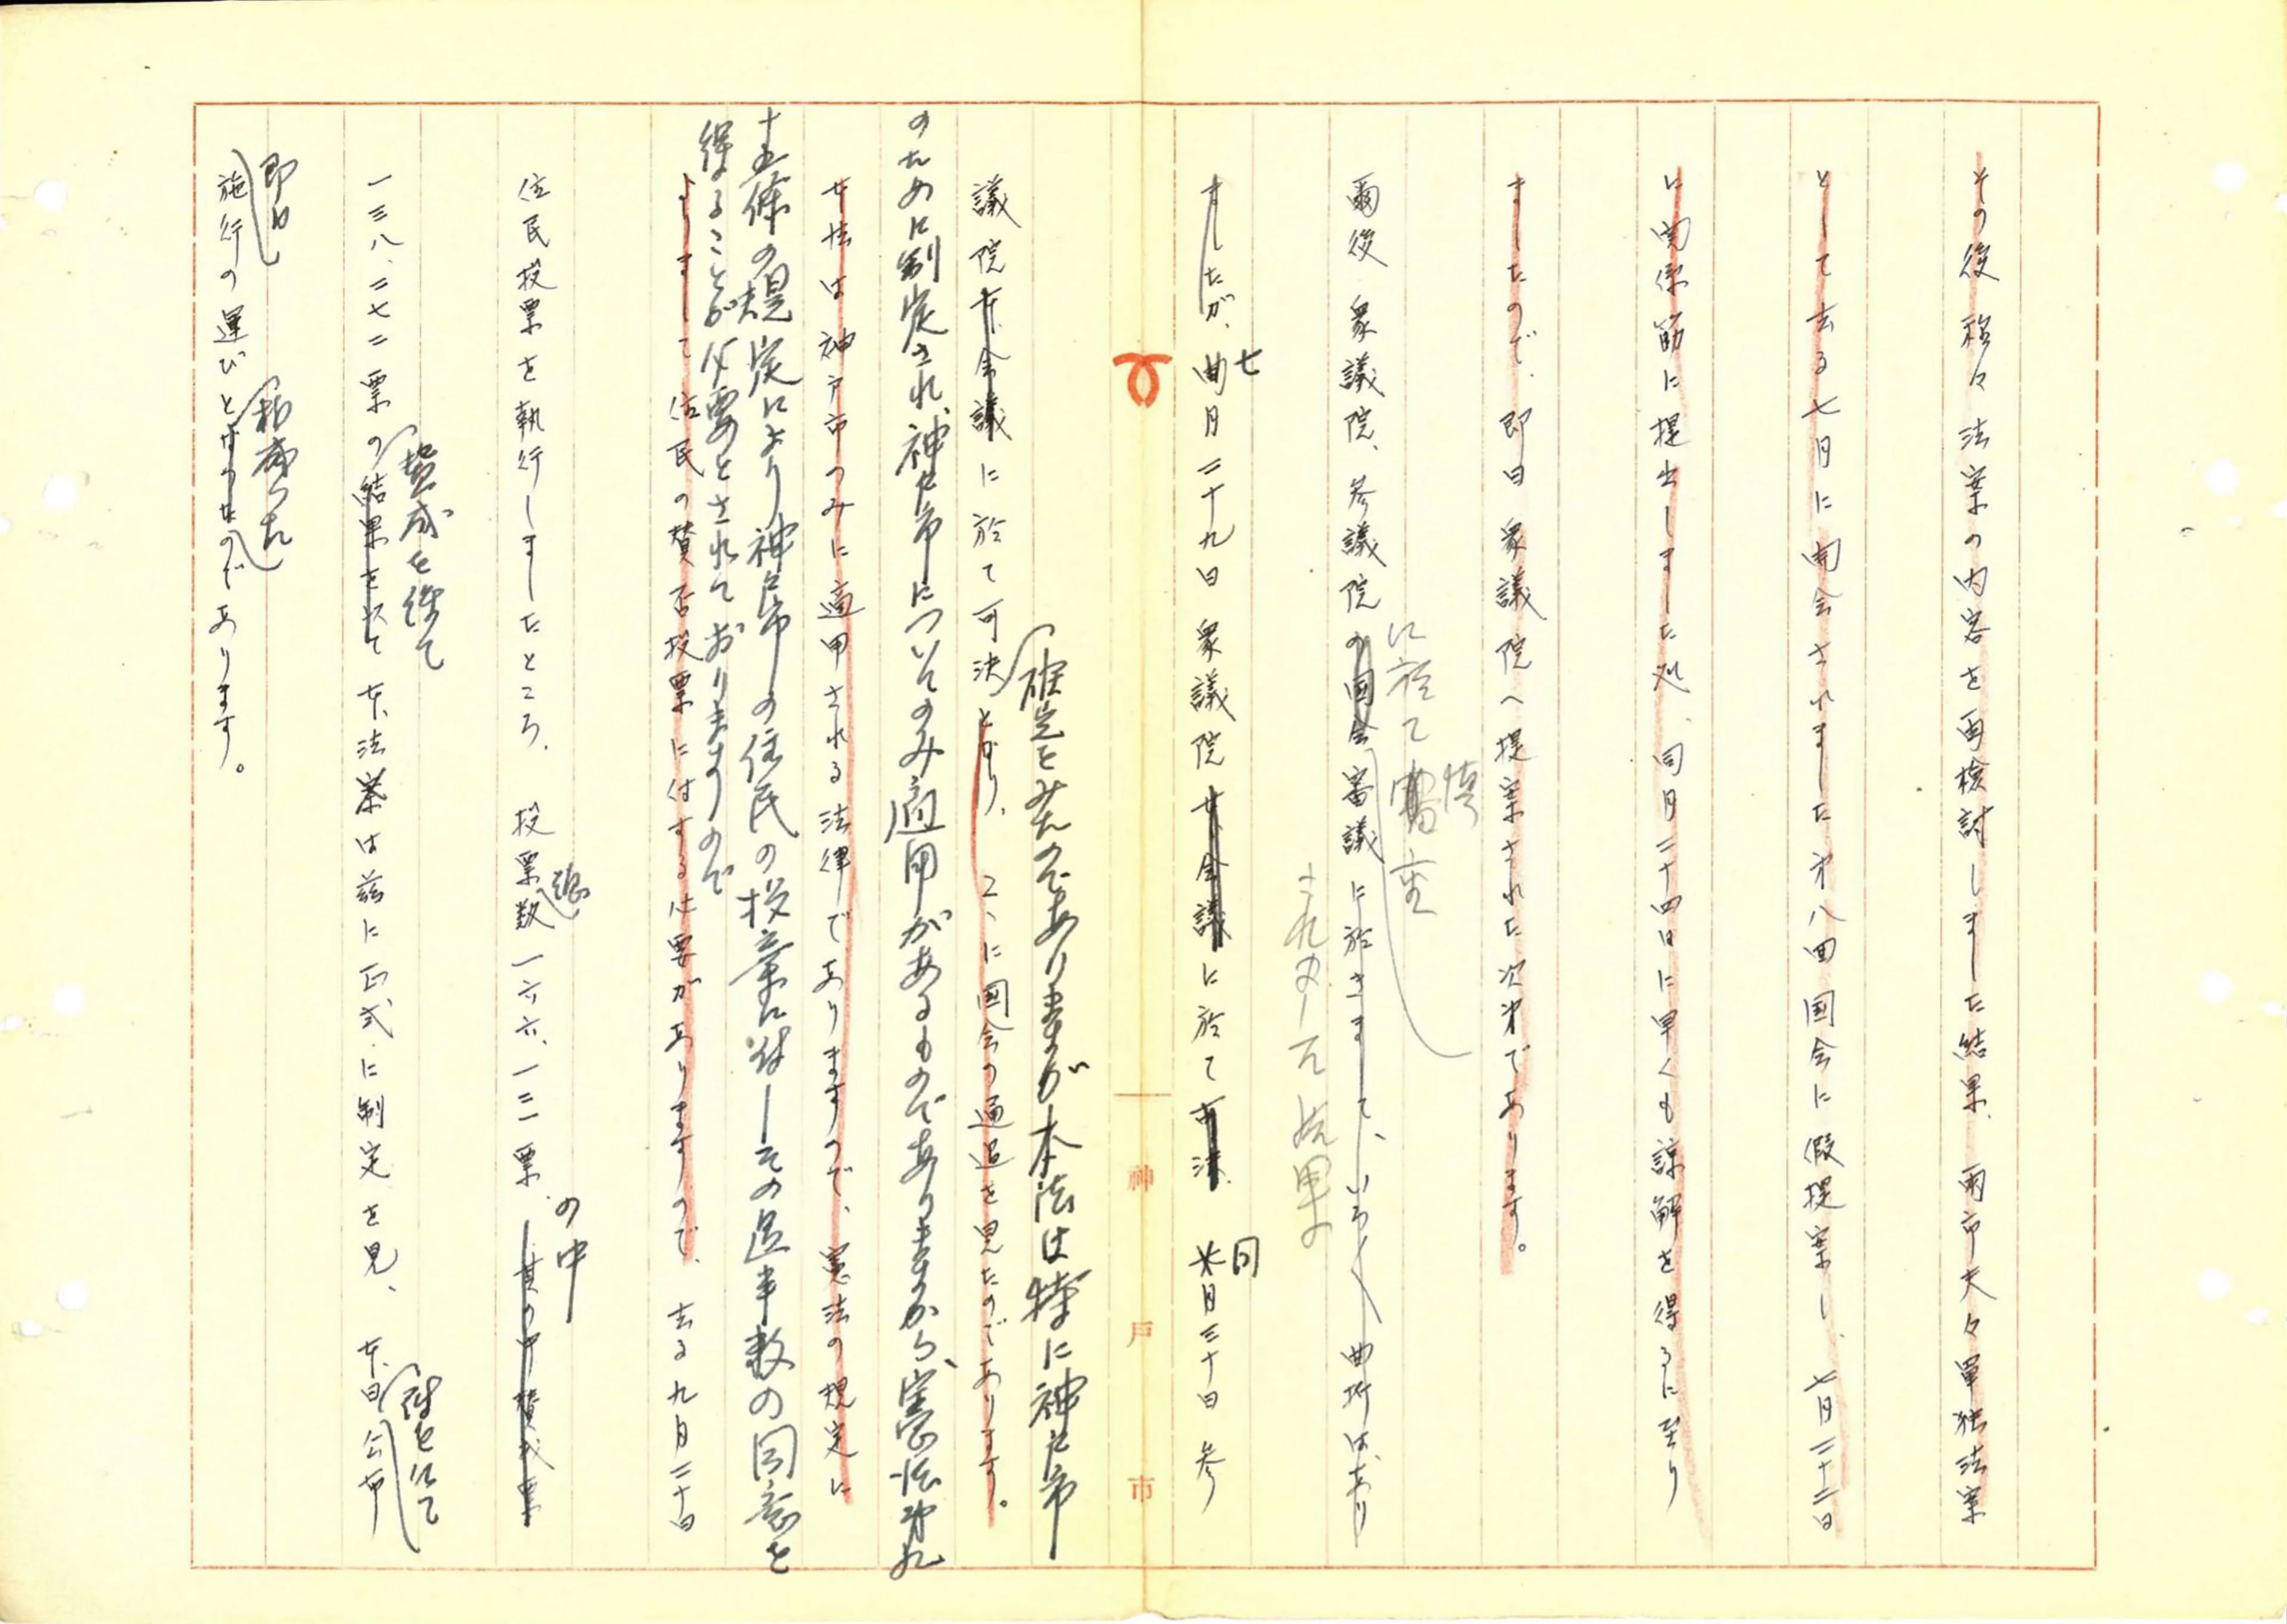 その後種々法案の内容を再検討しました結果、両市夫々単独法案
として去る七月に開会されました才八回国会に假提案し、七月二十二日
に関係筋に提出しました処、同月二十四日に早くも諒解を得るに至り
ましたので、即日衆議院へ提案された次才であります。
に於て
慎
審
重
爾後衆議院、参議院の国会審議に於きまして、いろ〱曲折はあり
これみまして結果
七
同
ましたが、月二十九日衆議院本会議に於て可決、月三十日参
神戸市
確定をみたのでありますが本法は特に神戸市
議院本会議に於て可決となり、こゝに国会の通過を見たのであります。
のために制定され神戸市についてのみ適用があるものでありますから、憲法第九
本法は神戸市のみに適用される法律でありますので、憲法の規定に
十五條の規定により神戸市の住民の投票に付しその過半数の同意を
得ることが必要とされておりますので
よりまして住民の賛否投票に付する必要がありますので、去る九月二十日
総
の中
住民投票を執行しましたところ、投票数一六六、一三一票、其の中賛成票
賛成を得て
付をにて
一三八、二七二票の結果を以て本法案は茲に正式に制定を見、本日公布
即日
相成った
施行の運びとなつたのであります。